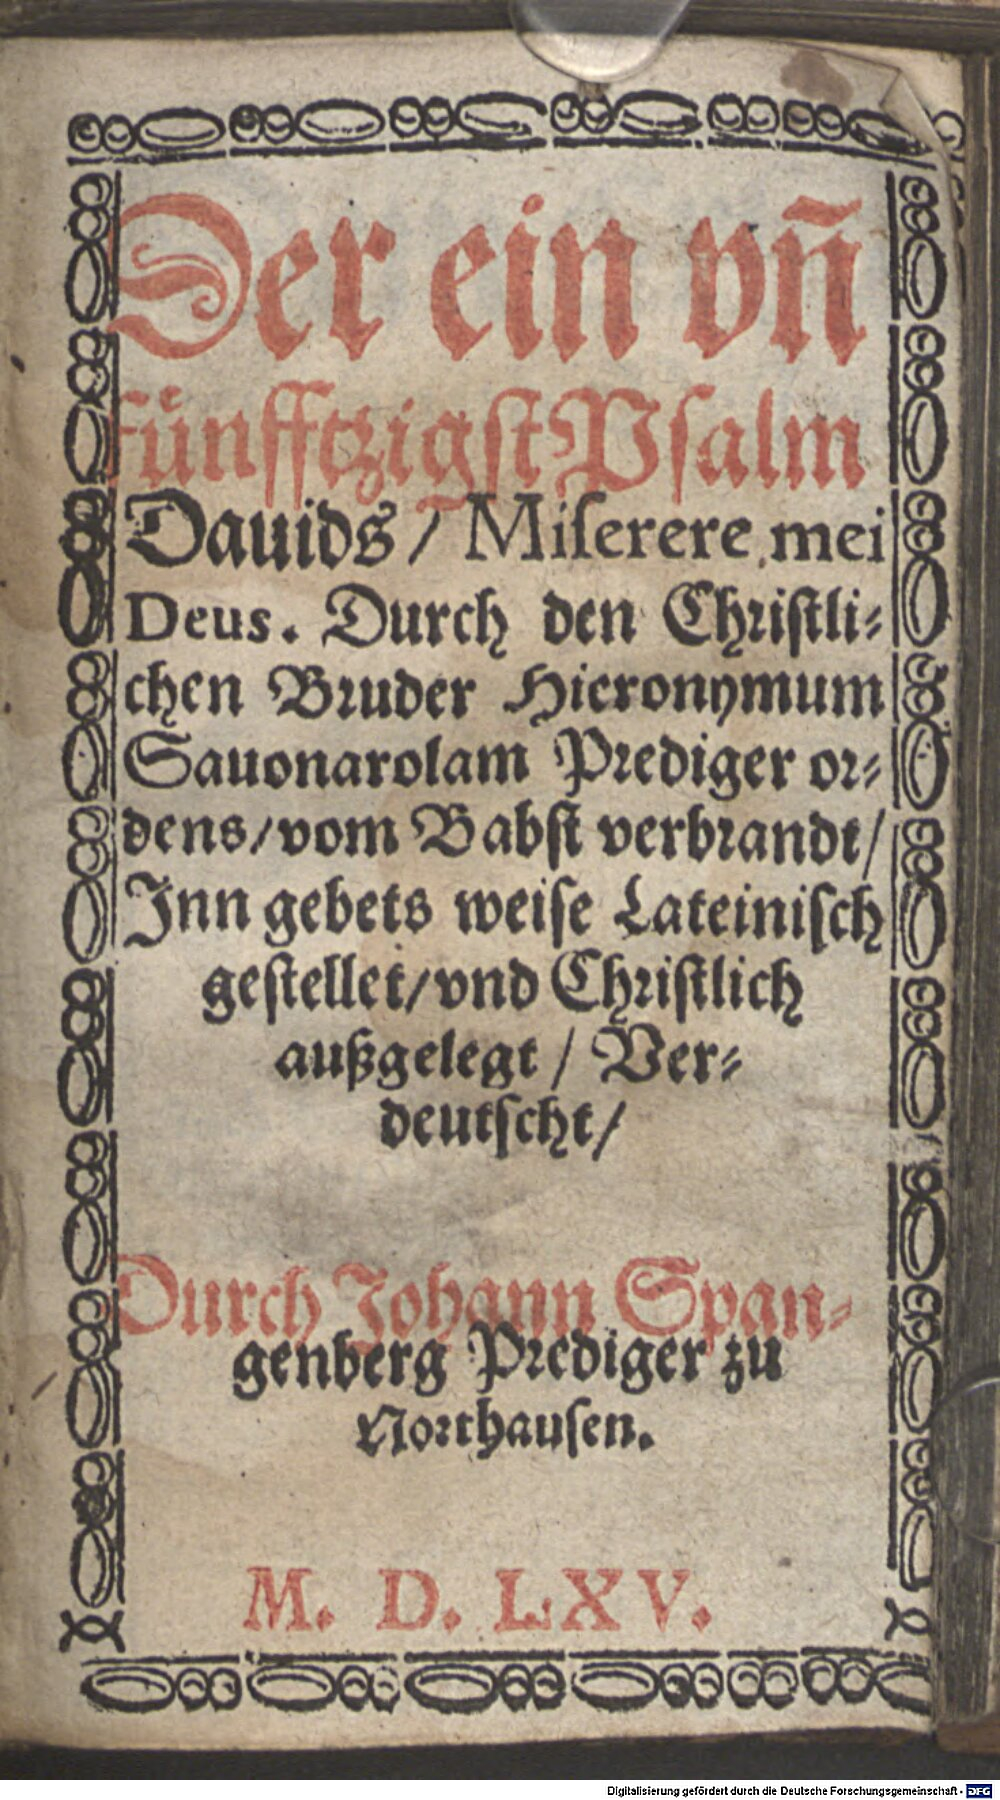 Der ein vñ
fünfftzigst Psalm
Dauids / Miserere mei
Deus. Durch den Christli⸗
chen Bruder Hieronymum
Sauonarolam Prediger or⸗
dens / vom Babst verbrandt /
Inn gebets weise Lateinisch
gestellet / vnd Christlich
außgelegt / Ver⸗
deutscht /
Durch Johann Span⸗
genberg Prediger zu
Northausen.
M. D. LXV.
Digitalisierung gefördert durch die Deutsche Forschungsgemeinschaft - DFG